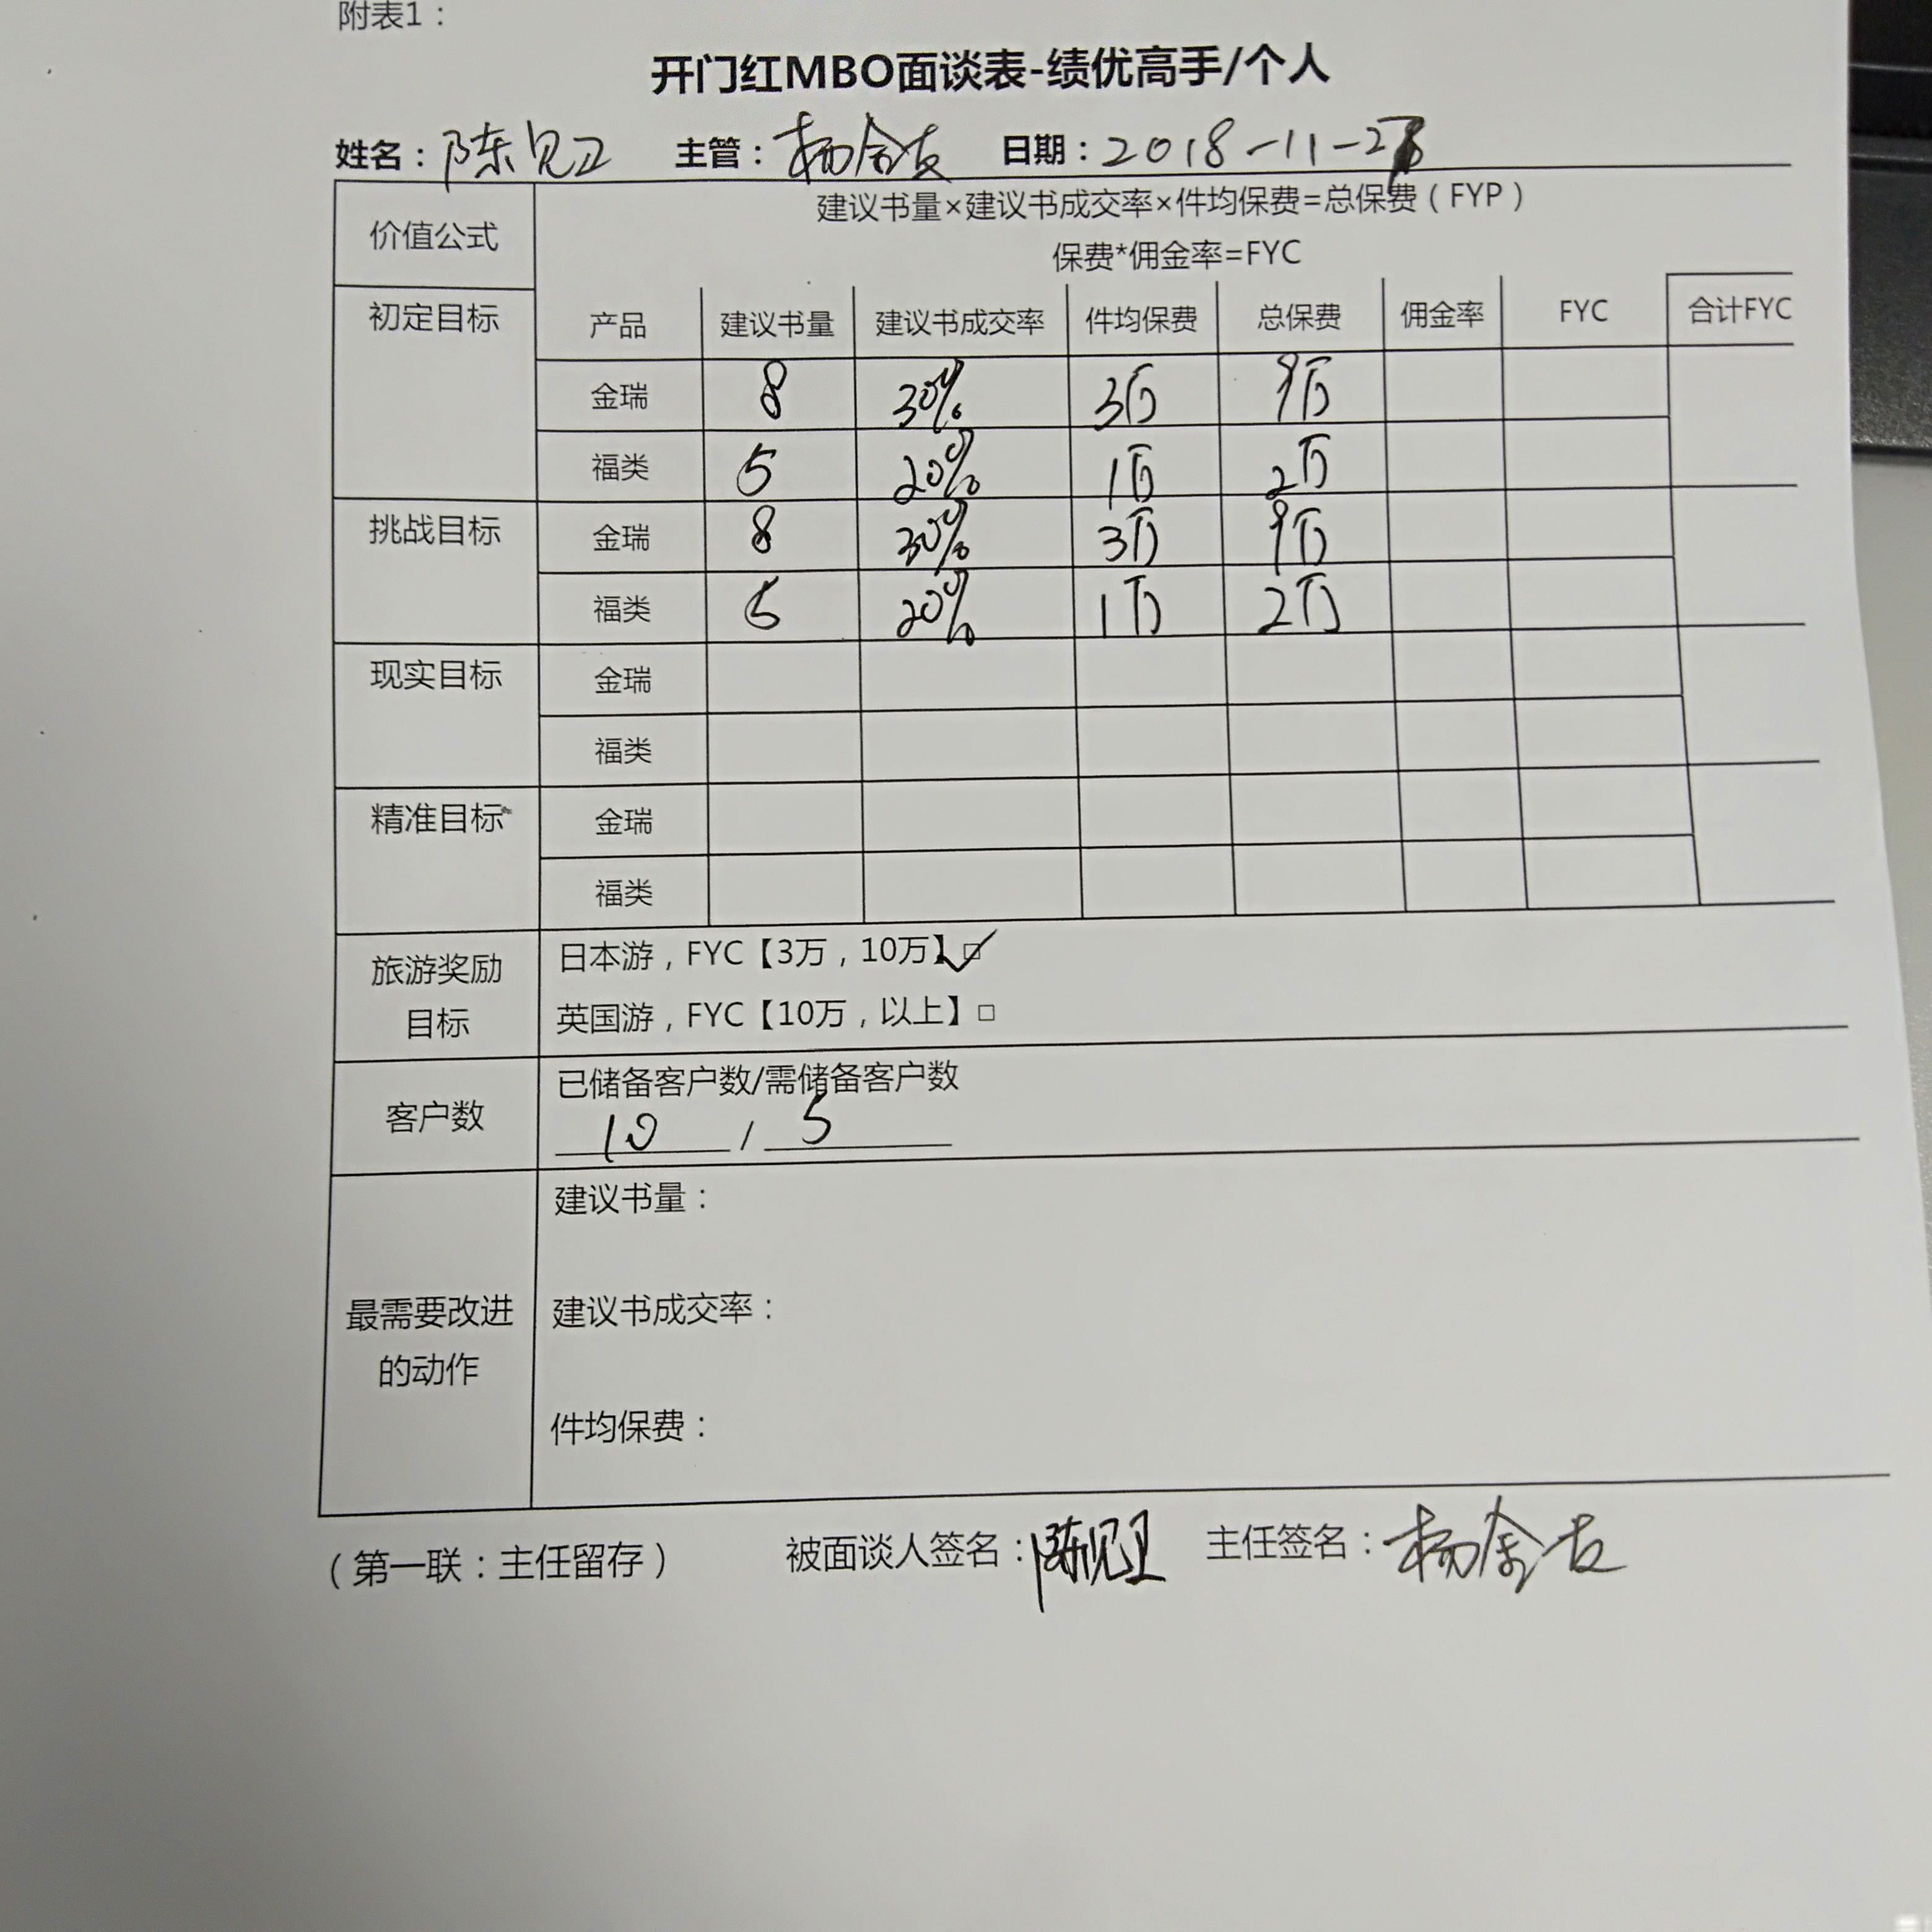 附表1：
开门红MBO面谈表-绩优高手/个人
姓名：陈见卫 主管：杨金友 日期：2018-11-2
价值公式 建议书量×建议书成交率×件均保费=总保费（FYP）
保费*佣金率=FYC
初定目标 产品 建议书量 建议书成交率 件均保费 总保费 佣金率 FYC 合计FYC
金瑞 8 30% 3万 9万
福类 5 20% 1万 2万
挑战目标 金瑞 8 30% 3万 9万
福类 5 20% 1万 2万
现实目标 金瑞
福类
精准目标 金瑞
福类
旅游奖励目标 日本游，FYC【3万，10万】☑
英国游，FYC【10万，以上】□
客户数 已储备客户数/需储备客户数
10 / 5
最需要改进的动作 建议书量：
建议书成交率：
件均保费：
（第一联：主任留存） 被面谈人签名：陈见卫 主任签名：杨金友